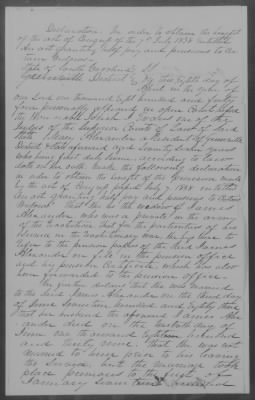 Declaration. In order to obtain the benefit
of the act of Congress of the 7th July 1838 entitled
An act granting half pay and pensions to certain
widows.
State of South Carolina
Greenville District
On this eighth day of
in the year of
our Lord one thousand eight hundred and forty
personally appeared in open Court before
the Honorable one of the
Judges of the Superior Court of Law of said
State Alexander a resident of Greenville
District & State aforesaid aged Seventy years
who being first duly sworn according to law
doth on her oath make the following declaration
in order to obtain the benefit of the provision made
by the act of Congress passed July 7, 1838 entitled
An act granting half pay and pensions to certain
widows. That she is the widow of James
Alexander, who was a private in the army
of the revolution, that for the particulars of his
service in the revolutionary war he begs leave to
refer to the pension papers of the said James
Alexander on file in the pension office
and his pension certificate which has also
been forwarded to the pension office.
She further declares that she was married
to the said James Alexander on the third day
of June Seventeen hundred and eighty three
that her husband the aforesaid James Alex-
ander died on the day of
June one thousand eighteen hundred
and thirty That she was not
married to him prior to his leaving
the service, but the marriage took
place previous to the first of
January Seventeen hundred